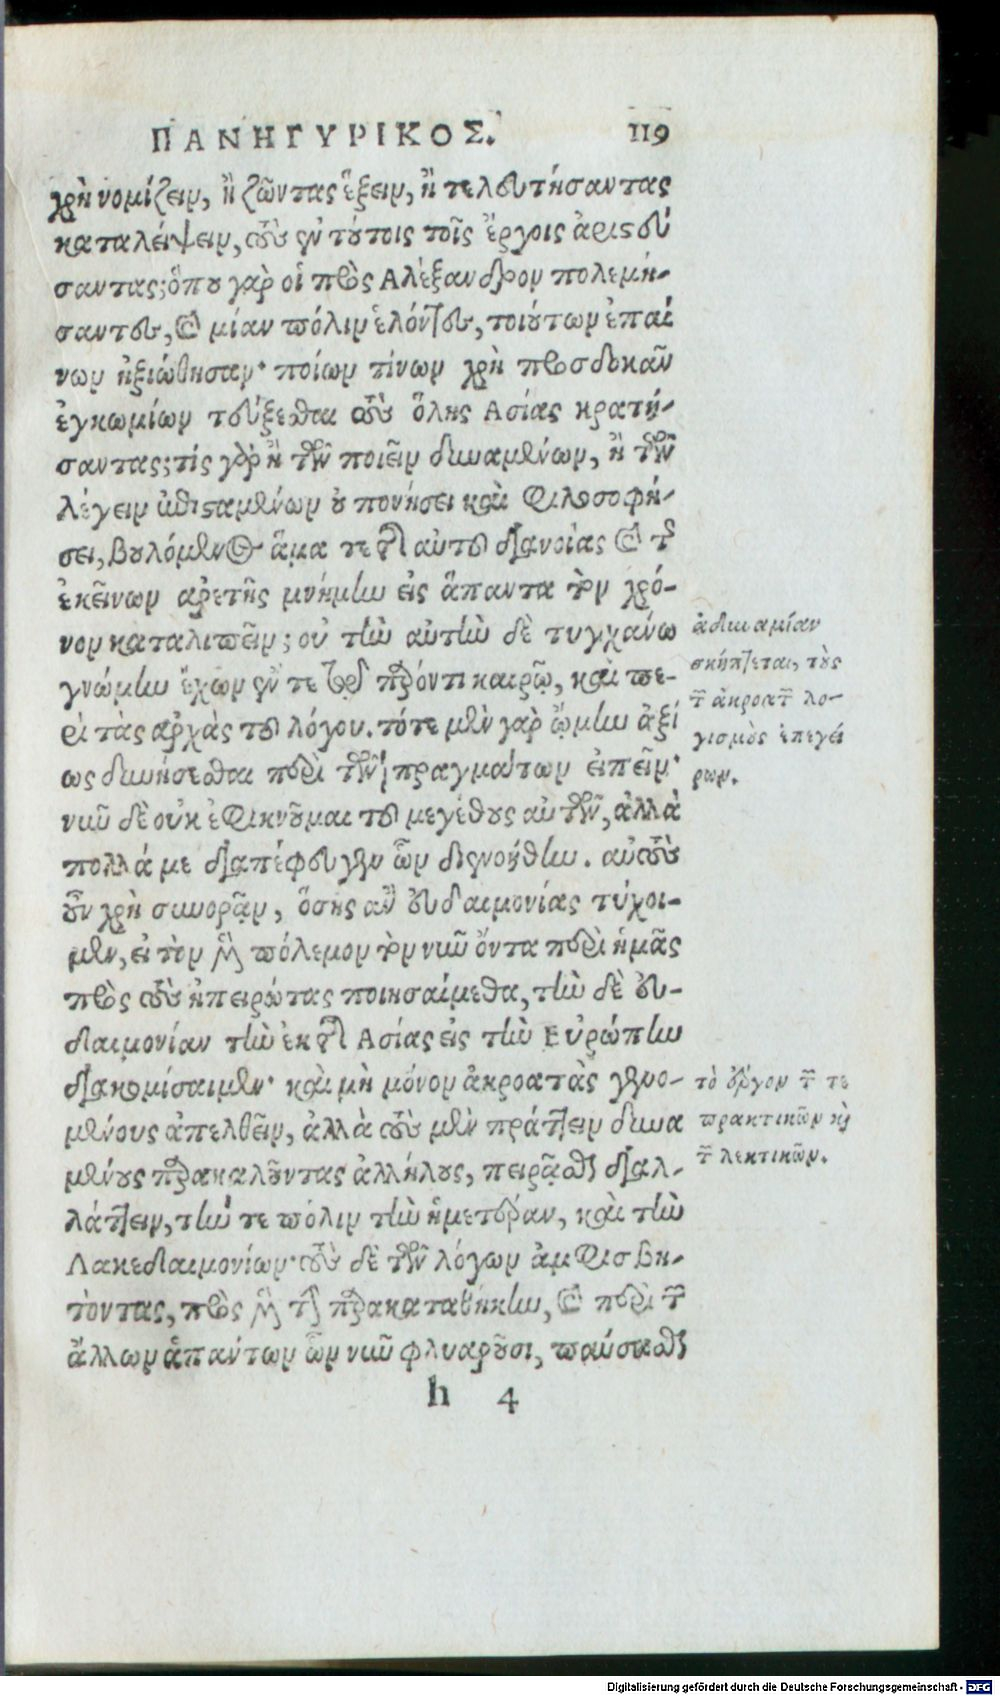 ΠΑΝΗΓΥΡΙΚΟΣ. 119
χρὴ νομίζειν, ἢ ζῶντας ἕξειν, ἢ τελευτήσαντας
καταλείψειν, τοὺς ἐν τούτοις τοῖς ἔργοις ἀριστεύ
σαντας; ὅπου γὰρ οἱ πρὸς Αλέξανδρον πολεμή-
σαντες, καὶ μίαν πόλιν ἑλόντες, τοιούτων ἐπαί
νων ἠξιώθησαν· ποίων τίνων χρὴ προσδοκᾶν
ἐγκωμίων τεύξεσθαι τοὺς ὅλης Ασίας κρατή-
σαντας; τίς γὰρ ἢ τῶν ποιεῖν δυναμένων, ἢ τῶν
λέγειν ἐπισταμένων οὐ πονήσει καὶ φιλοσοφή-
σει, βουλόμενος ἅμα τε τῆς αὐτοῦ διανοίας καὶ τῆς
ἐκείνων ἀρετῆς μνήμην εἰς ἅπαντα τὸν χρό-
νον καταλιπεῖν; οὐ τὴν αὐτὴν δὲ τυγχάνω
γνώμην ἔχων ἔν τε τῷ παρόντι καιρῷ, καὶ πε-
ρὶ τὰς ἀρχὰς τοῦ λόγου. τότε μὲν γὰρ ᾤμην ἀξί
ως δυνήσεσθαι περὶ τῶν πραγμάτων εἰπεῖν·
νῦν δὲ οὐκ ἐφικνοῦμαι τοῦ μεγέθους αὐτῶν, ἀλλὰ
πολλά με διαπέφευγεν ὧν διενοήθην. αὐτοὺς
οὖν χρὴ συνορᾷν, ὅσης ἂν εὐδαιμονίας τύχοι-
μεν, εἰ τὸν μὲν πόλεμον τὸν νῦν ὄντα περὶ ἡμᾶς
πρὸς τοὺς ἠπειρώτας ποιησαίμεθα, τὴν δὲ εὐ-
δαιμονίαν τὴν ἐκ τῆς Ασίας εἰς τὴν Εὐρώπην
διακομίσαιμεν· καὶ μὴ μόνον ἀκροατὰς γενο-
μένους ἀπελθεῖν, ἀλλὰ τοὺς μὲν πράττειν δυνα
μένους παρακαλοῦντας ἀλλήλους, πειρᾷσθαι διαλ-
λάττειν, τήν τε πόλιν τὴν ἡμετέραν, καὶ τὴν
Λακεδαιμονίων· τοὺς δὲ τῶν λόγων ἀμφισβη-
τοῦντας, πρὸς μὲν τὴν παρακαταθήκην, καὶ περὶ τῶν
ἄλλων ἁπάντων ὧν νῦν φλυαροῦσι, παύσασθαι
h 4
ἀδυναμίαν
σκήπτεται, τοὺς
τῶν ἀκροατῶν λο-
γισμοὺς ἐπεγεί
ρων.
τὸ ἔργον τῶν τε
πρακτικῶν καὶ
τῶν λεκτικῶν.
Digitalisierung gefördert durch die Deutsche Forschungsgemeinschaft - DFG